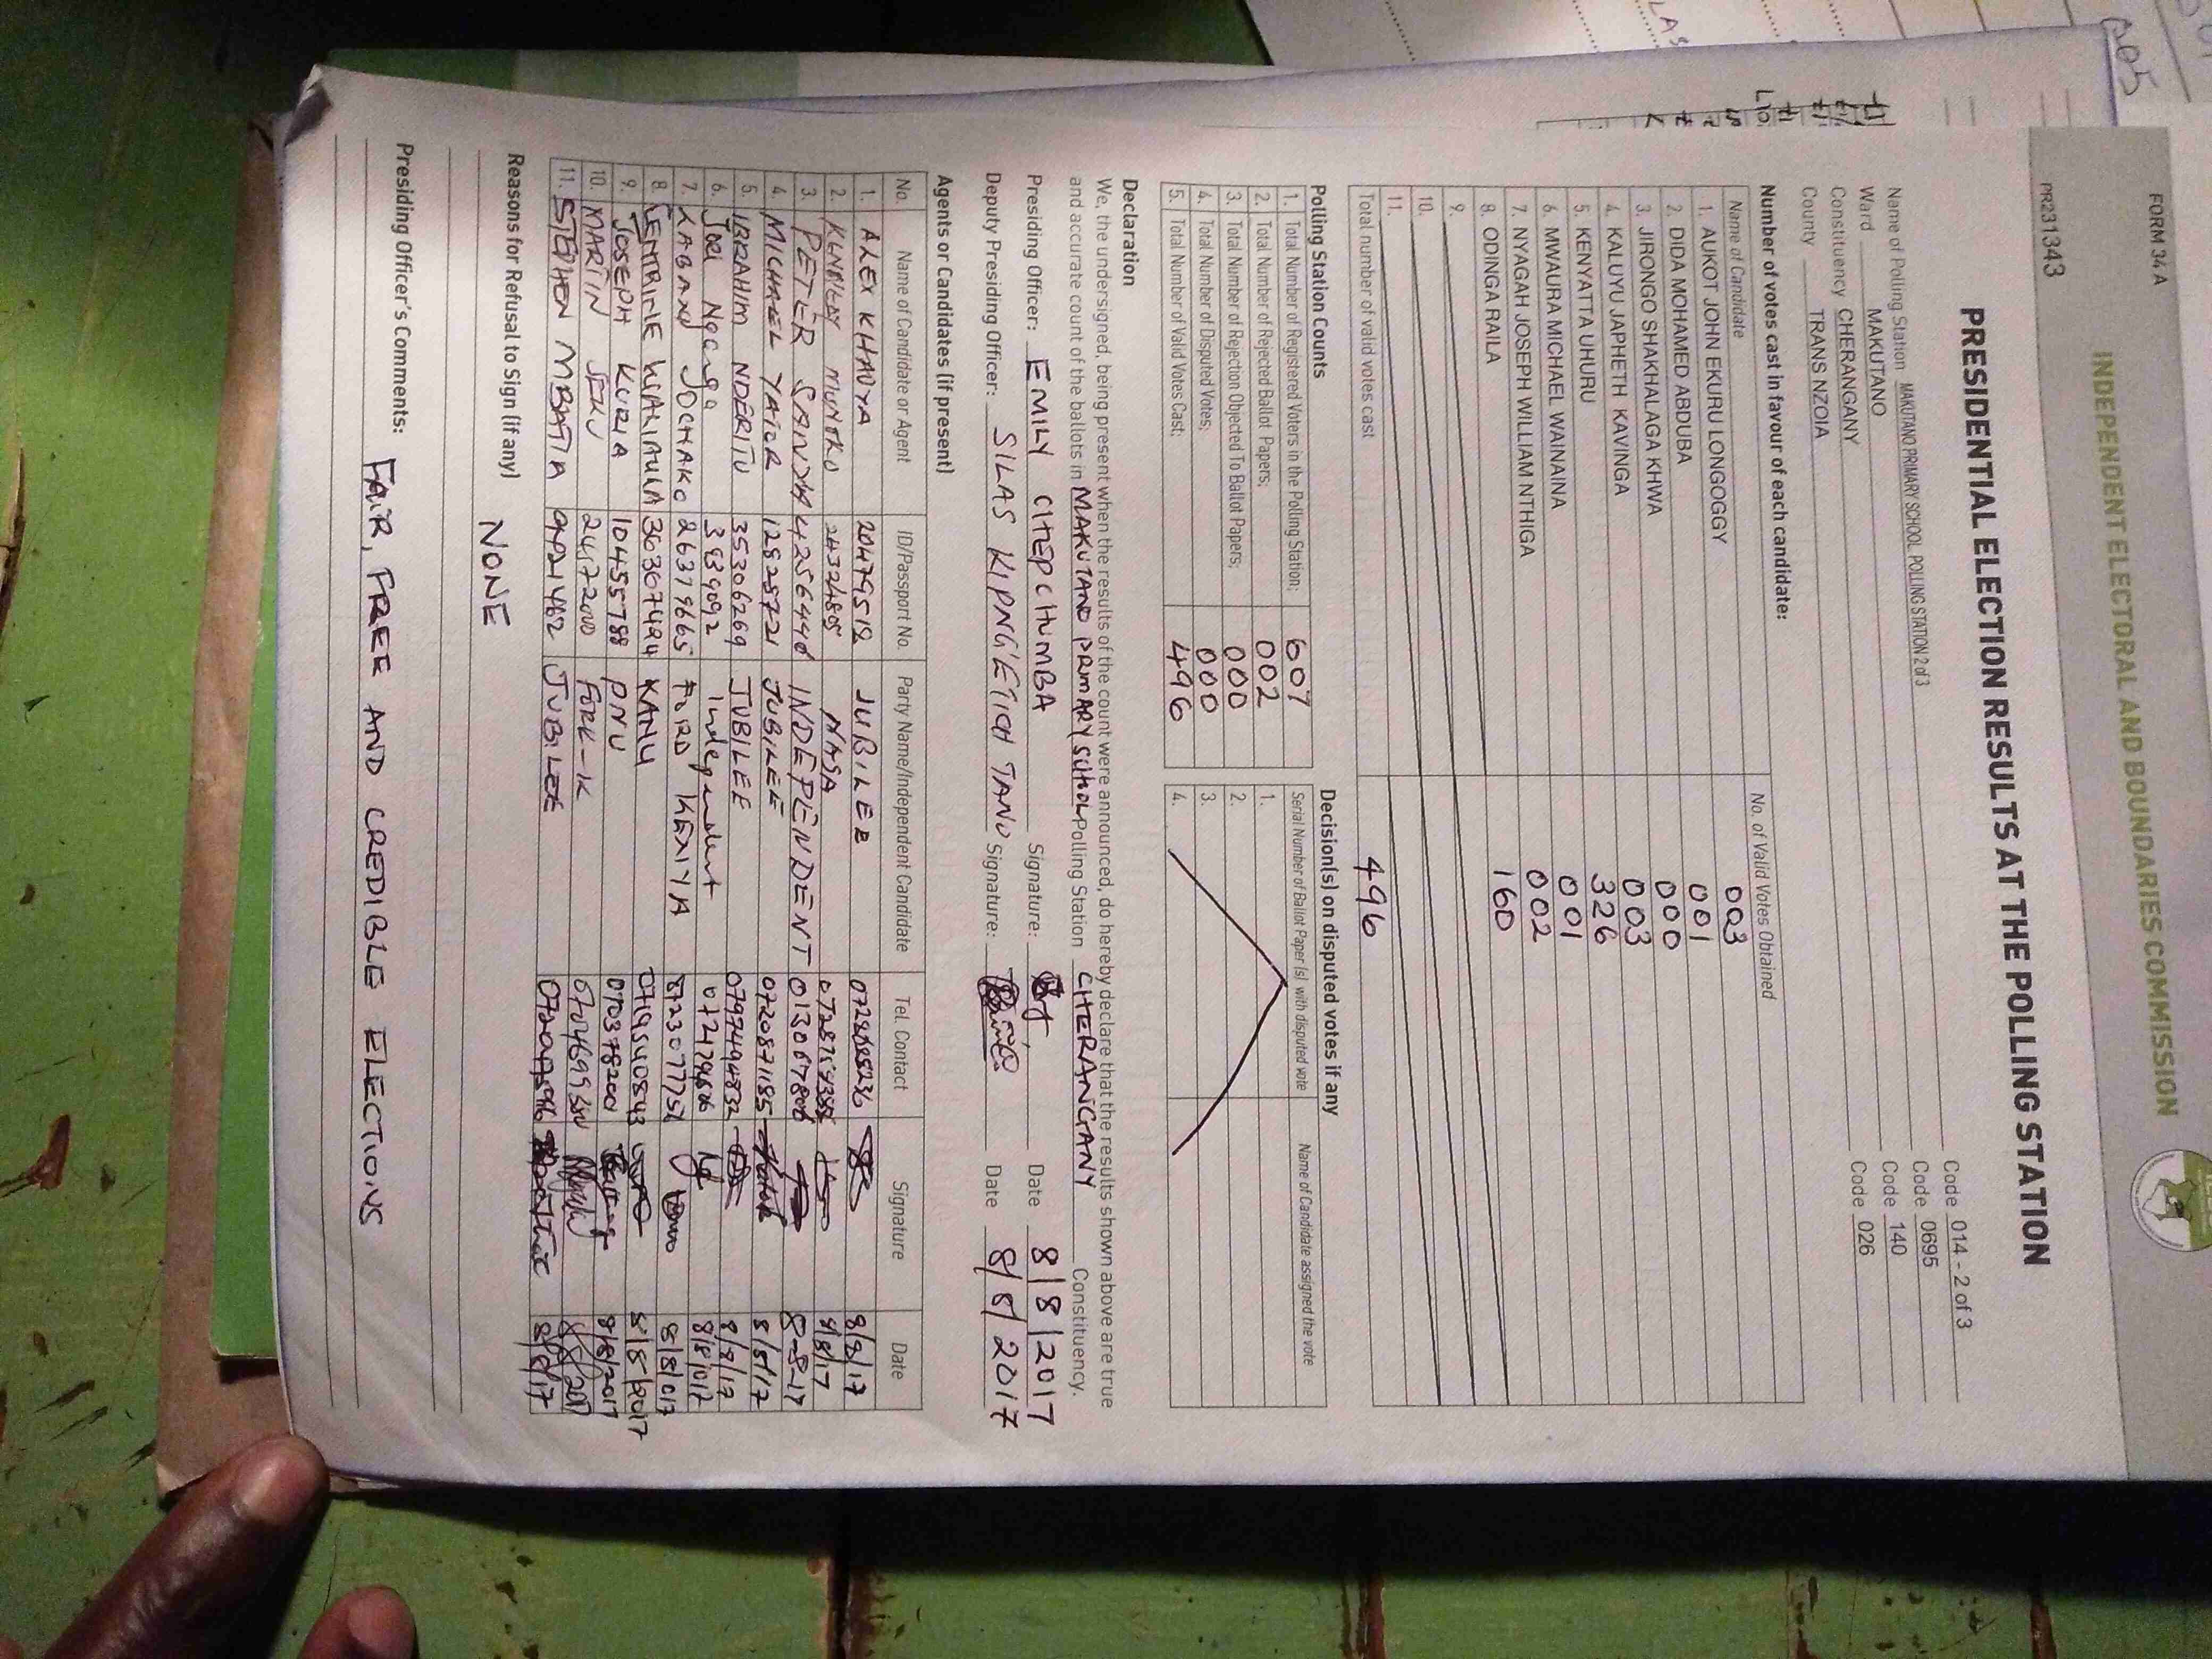 FORM 34 A
INDEPENDENT ELECTORAL AND BOUNDARIES COMMISSION
PR231343
PRESIDENTIAL ELECTION RESULTS AT THE POLLING STATION
Name of Polling Station MAKUTANO PRIMARY SCHOOL POLLING STATION 2 of 3 Code 014 - 2 of 3
Ward MAKUTANO Code 0695
Constituency CHERANGANY Code 140
County TRANS NZOIA Code 026
Number of votes cast in favour of each candidate:
Name of Candidate No. of Valid Votes Obtained
1. AUKOT JOHN EKURU LONGOGGY 003
2. DIDA MOHAMED ABDUBA 001
3. JIRONGO SHAKHALAGA KHWA 000
4. KALUYU JAPHETH KAVINGA 003
5. KENYATTA UHURU 326
6. MWAURA MICHAEL WAINAINA 001
7. NYAGAH JOSEPH WILLIAM NTHIGA 002
8. ODINGA RAILA 160
9.
10.
11.
Total number of valid votes cast 496
Polling Station Counts
1. Total Number of Registered Voters in the Polling Station; 607
2. Total Number of Rejected Ballot Papers; 002
3. Total Number of Rejection Objected To Ballot Papers; 000
4. Total Number of Disputed Votes; 000
5. Total Number of Valid Votes Cast; 496
Decision(s) on disputed votes if any
Serial Number of Ballot Paper (s) with disputed vote Name of Candidate assigned the vote
1.
2.
3.
4.
Declaration
We, the undersigned, being present when the results of the count were announced, do hereby declare that the results shown above are true
and accurate count of the ballots in MAKUTANO PRIMARY SCHOOL Polling Station CHERANGANY Constituency.
Presiding Officer: EMILY CHEPCHUMBA Signature: Date 8/8/2017
Deputy Presiding Officer: SILAS KIPNG'ETICH TANUI Signature: Date 8/8/2017
Agents or Candidates (if present)
No. Name of Candidate or Agent ID/Passport No. Party Name/Independent Candidate Tel. Contact Signature Date
1. ALEX KHAOYA 20479512 JUBILEE 8/8/17
2. 24332485 NASA 8/8/17
3. PETER INDEPENDENT 8-8-17
4. MICHAEL YATOR 12825721 JUBILEE 0720871185 8/8/17
5. IBRAHIM NDERITU 35306269 JUBILEE 0799494832 8/8/17
6. Joel Independent
7. 26379665 FORD KENYA
8. 363067424 KANU 8/8/2017
9. JOSEPH KURIA 10455788 PNU 0703782001 8/8/2017
10. MARTIN 24172000 FORK-K 8/8/2017
11. STEPHEN MBATIA JUBILEE 8/8/17
Reasons for Refusal to Sign (if any)
NONE
Presiding Officer's Comments: FAIR, FREE AND CREDIBLE ELECTIONS